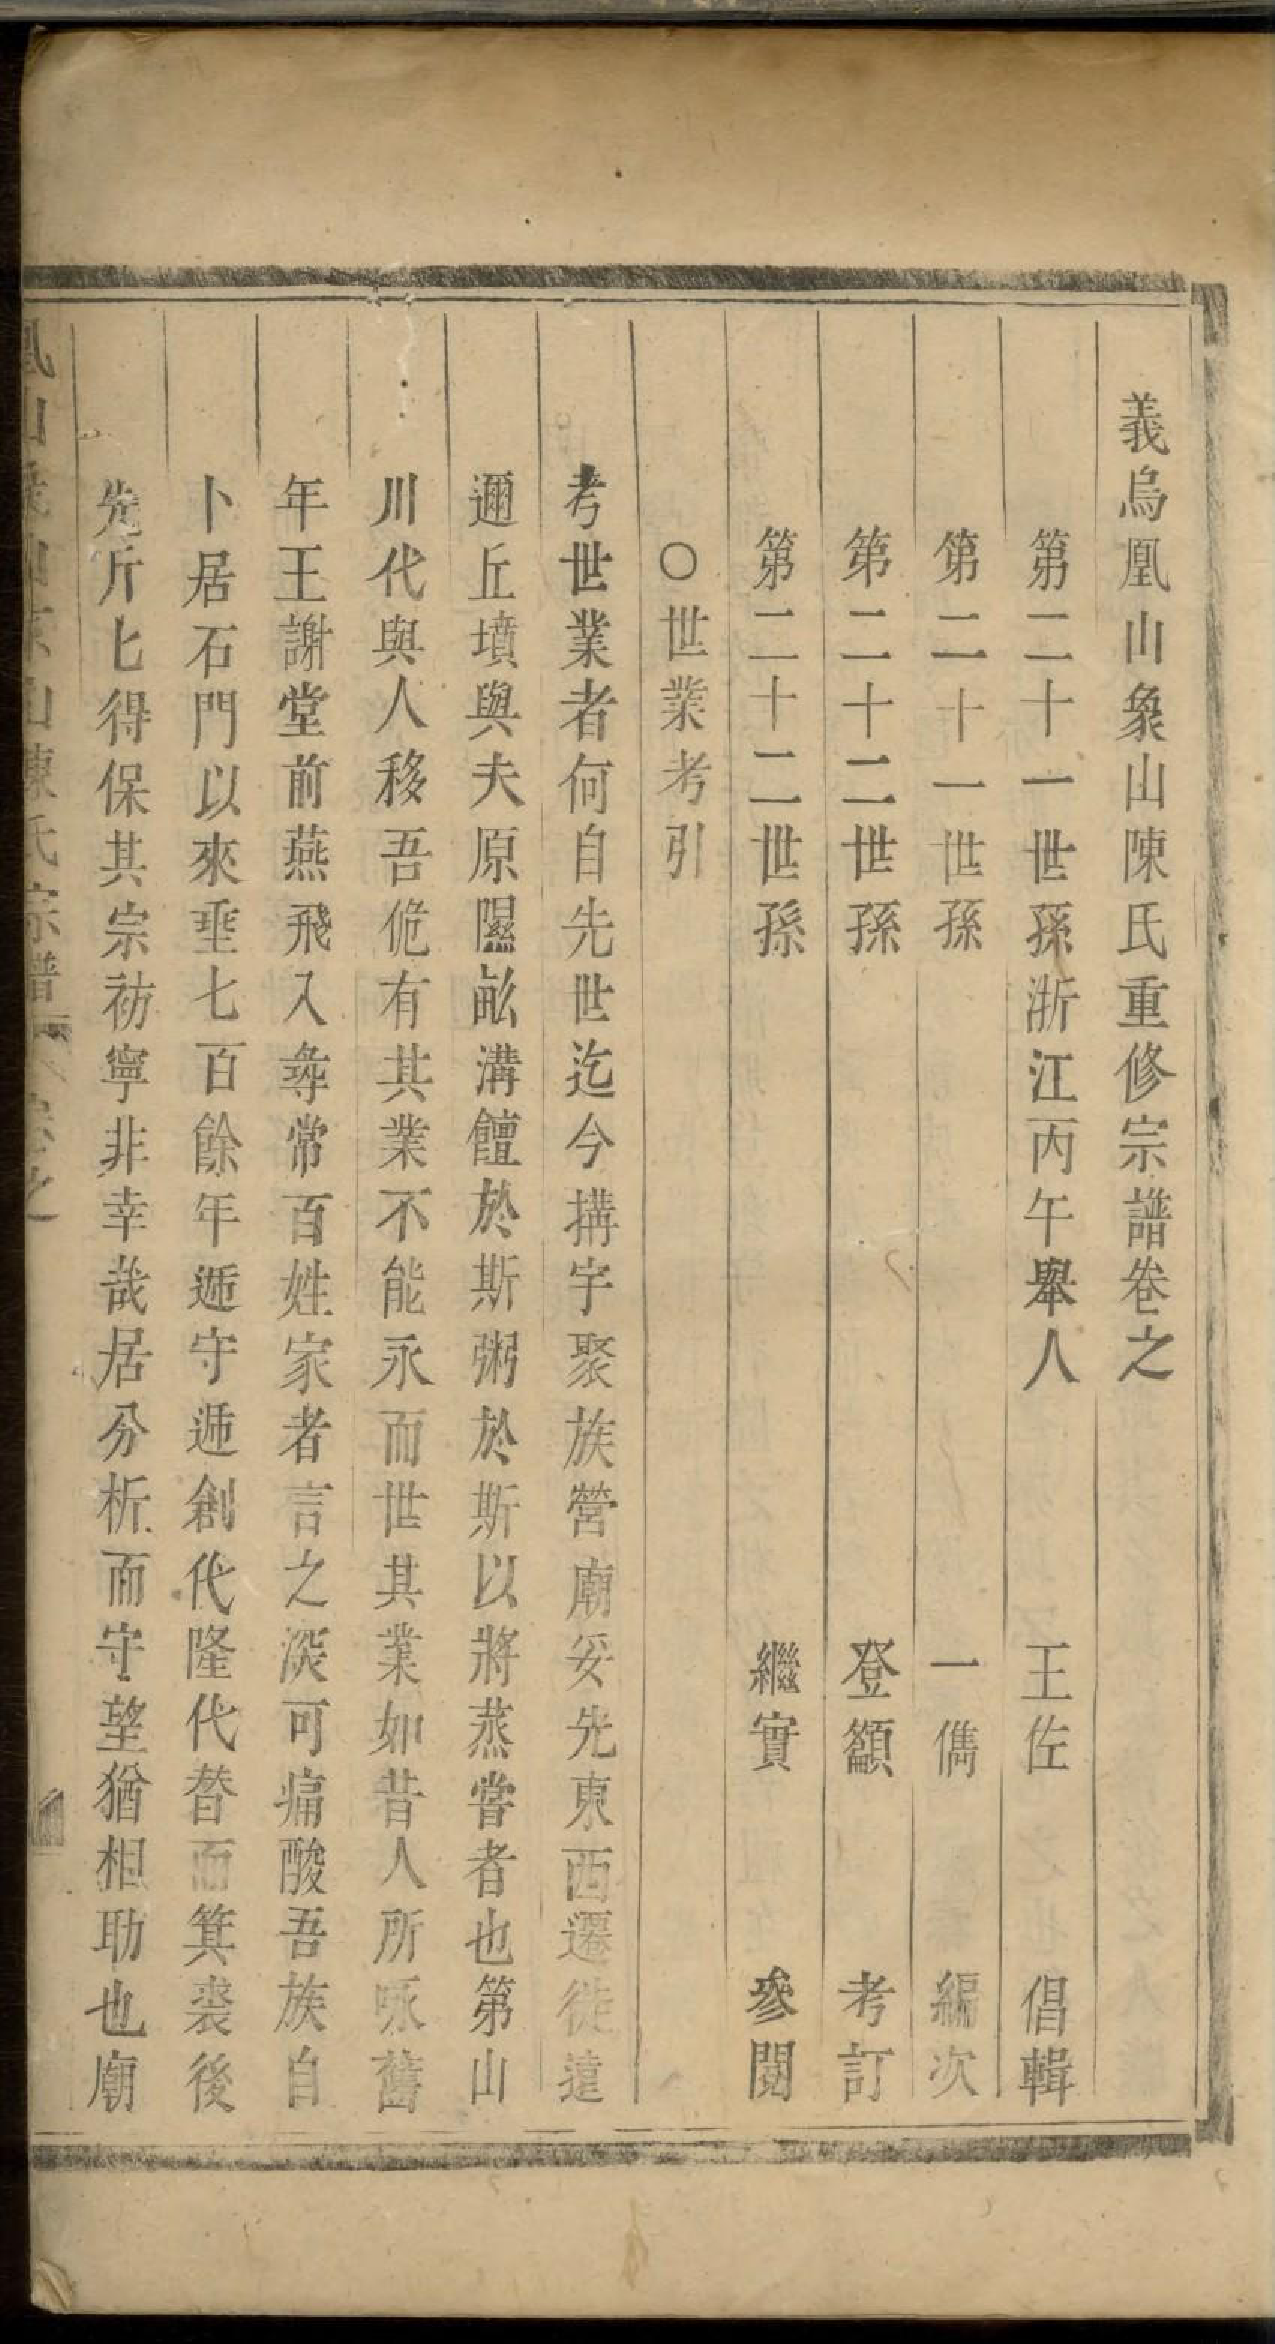 義烏凰山象山陳氏重修宗譜卷之
第二十一世孫浙江丙午舉人 王佐 倡輯
第二十一世孫 一儁 編次
第二十二世孫 登籲 考訂
第二十二世孫 繼實 參閱
○世業考引
考世業者何自先世迄今搆宇聚族營廟妥先東西遷徙遠
邇丘墳與夫原隰畝溝饘於斯粥於斯以將蒸嘗者也第山
川代與人移吾侂有其業不能永而世其業如昔人所咏舊
年王謝堂前燕飛入尋常百姓家者言之深可痛酸吾族自
卜居石門以來垂七百餘年遞守遞創代隆代替而箕裘後
先斤匕得保其宗祊寧非幸哉居分析而守望猶相助也廟
凰山象山陳氏宗譜